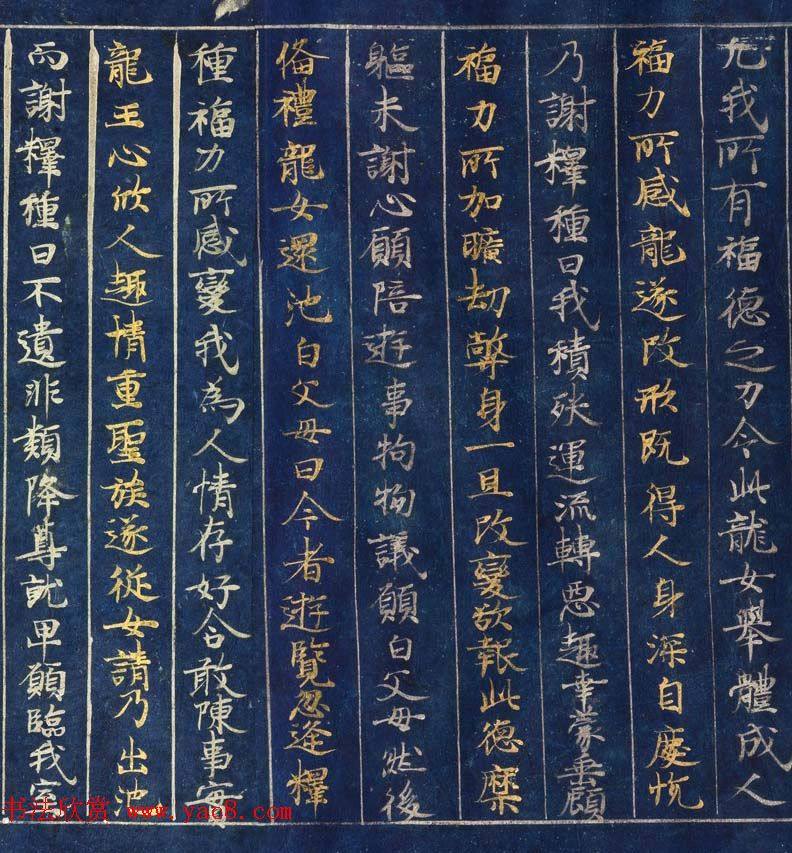 凢我所有福德之力令此龍女舉體成人
福力所感龍遂改形既得人身深自慶悅
乃謝釋種曰我積殃運流轉惡趣幸蒙垂顧
福力所加曠劫弊身一旦改變欲報此德糜
軀未謝心願陪遊事拘物議願白父母然後
俻禮龍女還池白父母曰今者遊覽忽逢釋
種福力所感變我為人情存好合敢陳事實
龍王心欣人趣情重聖族遂從女請乃出池
而謝釋種曰不遺非類降尊就卑願臨我室
书法欣赏 www.yac8.com